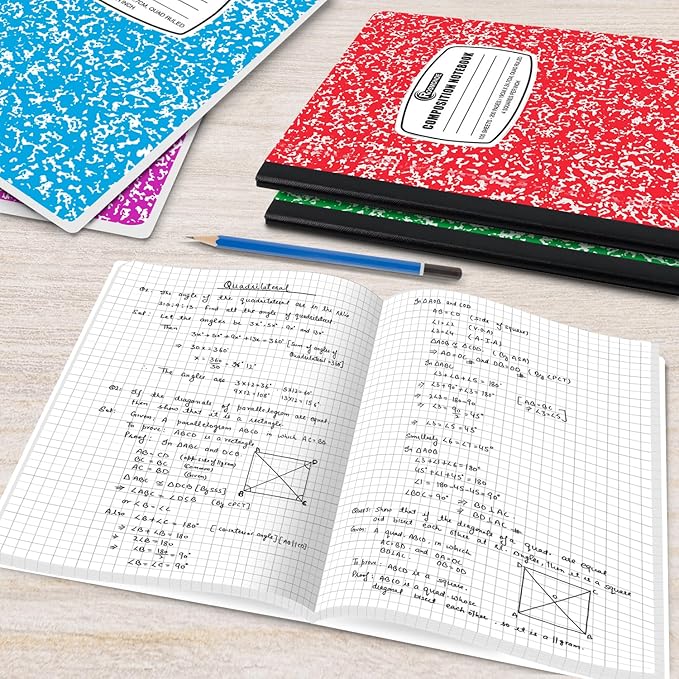 CM, QUAD RULED
INCH
COMPOSITION NOTEBOOK
4 SQUARES PER INCH
Quadrilateral
Q1. The angle of the quadrilateral are in the ratio
3:5:9:13. Find all the angle of quadrilateral
Sol: Let the angles be 3x°, 5x°, 9x° and 13x°
Then 3x°+5x°+9x°+13x = 360° [Sum of angles of
Quadrilateral = 360°]
⇒ 30x = 360°
x = 360/30 = 12°
The angles are 3×12=36° 5×12=60°
9×12=108° 13×12=156°
Q2: If the diagonals of parallelogram are equal
then show that it is a rectangle.
Given: A parallelogram ABCD in which AC=BD
To prove: ABCD is a rectangle
Proof: In ΔABC and DCB
AB = CD (opp. side of llgram)
BC = BC (Common)
AC = BD (Given)
ΔABC ≅ ΔDCB [By SSS]
⇒ ∠ABC = ∠DCB (By CPCT)
or ∠B = ∠C
Also ∠B + ∠C = 180° [co-interior angle] [AB||CD]
⇒ ∠B + ∠B = 180°
⇒ 2∠B = 180°
⇒ ∠B = 180/2 = 90°
∠B = ∠C = 90°
D
B
C
In ΔAOB and COD
AB = CD (side of square)
∠1 = ∠2
∠3 = ∠4 (A.I.A)
ΔAOB ≅ ΔCOD (By ASA)
⇒ AO = OC and OB = OD (By CPCT)
In ΔABC
∠3 + ∠B + ∠5 = 180°
⇒ ∠3 + 90° + ∠3 = 180° [AB = BC
⇒ ∠3 = ∠5]
⇒ 2∠3 = 90°
⇒ ∠3 = 90/2 = 45°
⇒ ∠3 = ∠5 = 45°
Similarly ∠6 = ∠7 = 45°
In ΔAOB
∠3 + ∠1 + ∠6 = 180°
45° + ∠1 + 45° = 180°
∠1 = 180-45-45 = 90°
∠BOC = 90° ⇒ BD⊥AC
⇒ BD⊥AC
Show that if the diagonals of a quad. are equal
and bisect each other at rt. angles, then it is a square
Given: A quad. ABCD, in which
AC = BD and OA = OC
BD⊥AC OB = OD
To prove: ABCD is a square.
Proof: ABCD is a quad. whose
diagonal bisect each other, so it is a llgram.
D
C
O
A
B